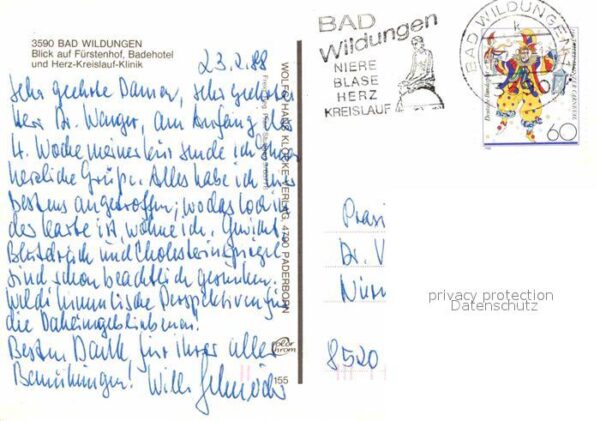 3590 BAD WILDUNGEN
Blick auf Fürstenhof, Badehotel
und Herz-Kreislauf-Klinik
23.2.88
Sehr geehrte Damen, sehr geehrter
Herr Dr. am Anfang der
4. Woche meiner Kur sende ich Ihnen
herzliche Grüße. Alles habe ich hier
bestens angetroffen; wo das Loch in
der Karte ist, wohne ich. Gewicht,
Blutdruck und Cholesterinspiegel
sind schon beachtlich gesunken,
Perspektiven für
die Daheimgebliebenen.
Besten Dank für Ihrer aller
Bemühungen! Willi
WOLFGANG KLOPKE-VERLAG, 4790 PADERBORN
color
chrom
155
BAD
Wildungen
NIERE
BLASE
HERZ
KREISLAUF
BAD WILDUNGEN 1
k
60
Praxi
Dr.
8520
privacy protection
Datenschutz